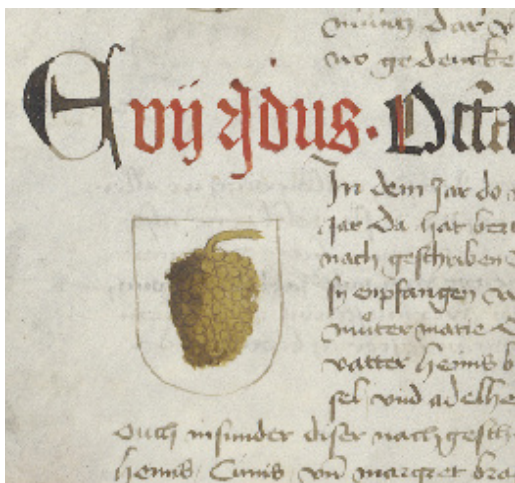 dar
no gedencke
E vij ydus. Octa
In dem Jar do
Jar Da hat
nach geschriben
sy enpfangen
muter marie
vatter heinis
sel vnd adelhe
ouch insunder diser nach gesch
heinis Cunis vn margret bra